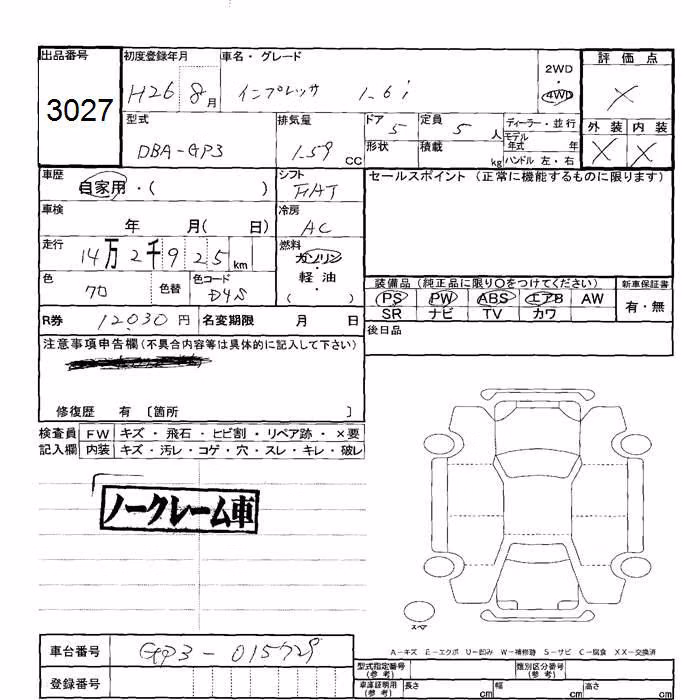 出品番号 初度登録年月 車名・グレード 2WD・4WD 評価点
3027 H26 8月 インプレッサ 1.6i X
型式 排気量 ドア 5 定員 5人 ディーラー・並行 外装 内装
DBA-GP3 1.59 CC 形状 積載 kg モデル年式 年 X X
ハンドル 左・右
車歴 自家用・( ) シフト FAT セールスポイント (正常に機能するものに限ります)
車検 年 月( 日) 冷房 AC
走行 14万2千925km 燃料 ガソリン・軽油 ( )
色 色替 色コード D4S
装備品 (純正品に限り〇をつけてください) 新車保証書
PS PW ABS エアB AW 有・無
SR ナビ TV カワ
R券 12,030円 名変期限 月 日 後日品
注意事項申告欄(不具合内容等は具体的に記入して下さい)
修復歴 有 〔箇所 〕
検査員 FW キズ・飛石・ヒビ割・リペア跡・×要
記入欄 内装 キズ・汚レ・コゲ・穴・スレ・キレ・破レ
ノークレーム車
スペア
A-キズ E-エクボ U-凹み W-補修跡 S-サビ C-腐食 XX-交換済
車台番号 GP3-015729
型式指定番号(参考) 類別区分番号(参考)
登録番号 車庫証明用(参考) 長さ cm 幅 cm 高さ cm